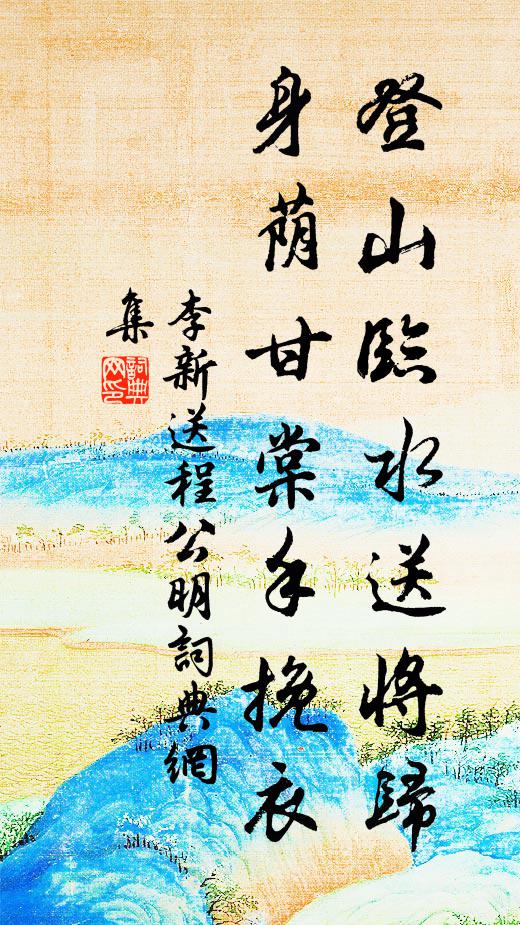 登山臨水送將歸
身荫甘棠手挽衣
李新送程公明詞典網
集
詞典
网印